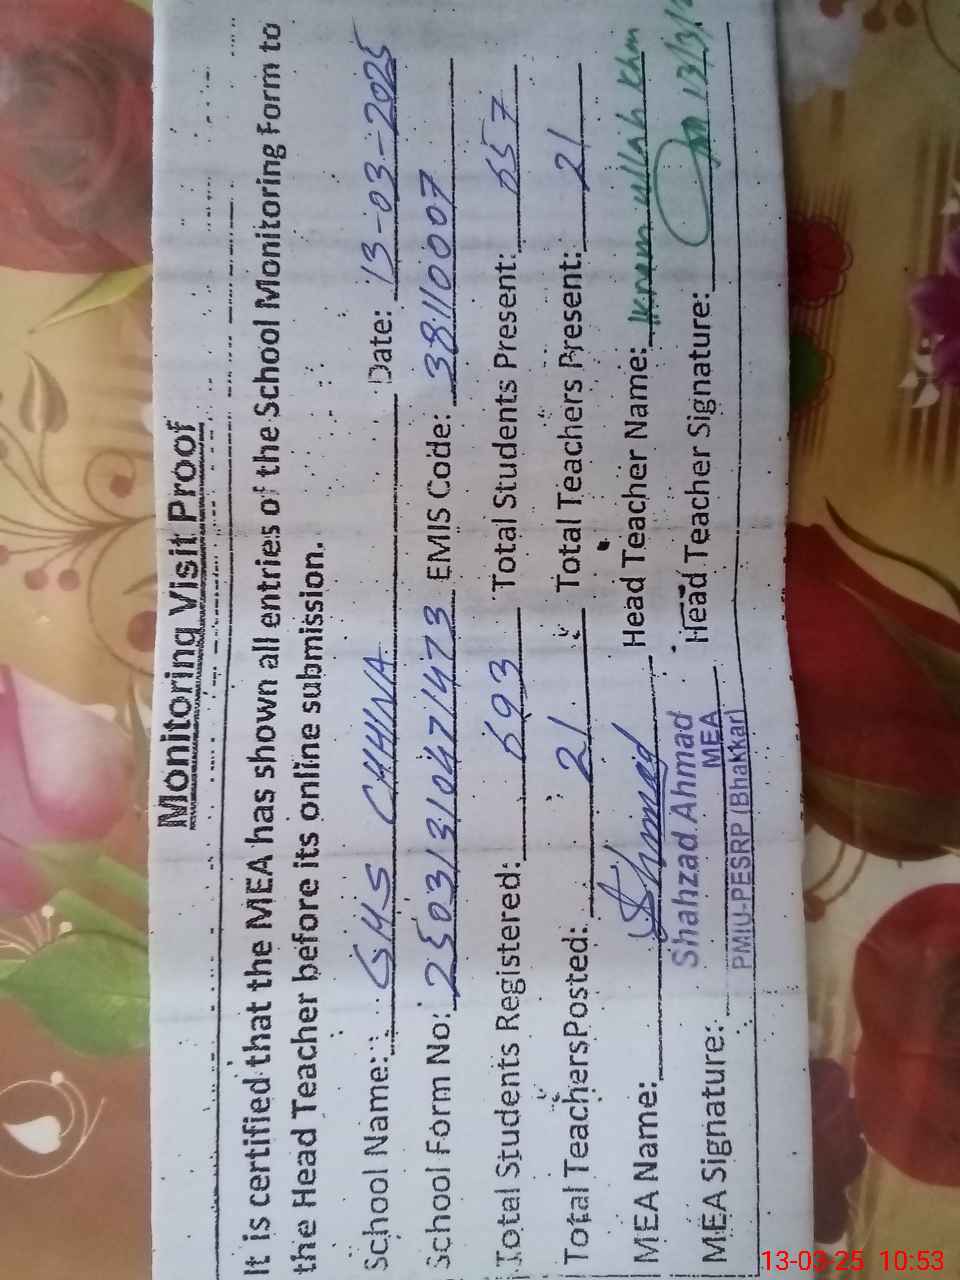 Monitoring Visit Proof
It is certified that the MEA has shown all entries of the School Monitoring Form to
the Head Teacher before its online submission.
School Name: GHS CHHINA Date: 13-03-2025
School Form No: 25031310471473 EMIS Code: 38110007
Total Students Registered: 693 Total Students Present: 657
Total Teachers Posted: 21 Total Teachers Present: 21
MEA Name: Ahmad Head Teacher Name: Ikram ullah Khan
MEA Signature: Shahzad Ahmad Head Teacher Signature: 13/3/
MEA
PMIU-PESRP (Bhakkar)
13-03-25 10:53